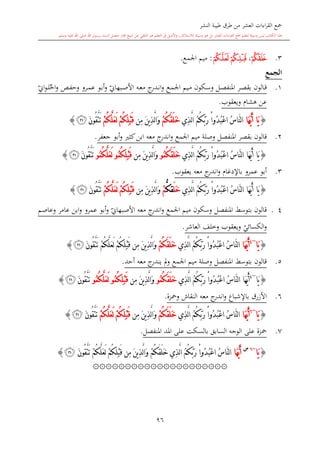 جمع القراءات العشر من طرق طيبة النشر
٣. خَلَقَكُمۡ، قَبۡلِكُمۡ، لَعَلَّكُمۡ: ميم الجمع.
الجمع
١. قالون بقصر المنفصل وسكون ميم الجمع واندرج معه الأصبهانيّ وأبو عمرو وحفص والحُلوانيّ
عن هشام ويعقوب.
﴿يَٰٓأَيُّهَا ٱلنَّاسُ ٱعۡبُدُواْ رَبَّكُمُ ٱلَّذِي خَلَقَكُمۡ وَٱلَّذِينَ مِن قَبۡلِكُمۡ لَعَلَّكُمۡ تَتَّقُونَ ٢١﴾
٢. قالون بقصر المنفصل وصلة ميم الجمع واندرج معه ابن كثير وأبو جعفر.
﴿يَٰٓأَيُّهَا ٱلنَّاسُ ٱعۡبُدُواْ رَبَّكُمُ ٱلَّذِي خَلَقَكُمُو وَٱلَّذِينَ مِن قَبۡلِكُمُو لَعَلَّكُمُو تَتَّقُونَ ٢١﴾
٣. أبو عمرو بالإدغام واندرج معه يعقوب.
﴿يَٰٓأَيُّهَا ٱلنَّاسُ ٱعۡبُدُواْ رَبَّكُمُ ٱلَّذِي خَلَقكُّمۡ وَٱلَّذِينَ مِن قَبۡلِكُمۡ لَعَلَّكُمۡ تَتَّقُونَ ٢١﴾
٤. قالون بتوسط المنفصل وسكون ميم الجمع واندرج معه الأصبهانيّ وأبو عمرو وابن عامر وعاصم
والكسائيّ ويعقوب وخلف العاشر.
﴿يَٰٓأَيُّهَا ٱلنَّاسُ ٱعۡبُدُواْ رَبَّكُمُ ٱلَّذِي خَلَقَكُمۡ وَٱلَّذِينَ مِن قَبۡلِكُمۡ لَعَلَّكُمۡ تَتَّقُونَ ٢١﴾
٥. قالون بتوسط المنفصل وصلة ميم الجمع ولم يندرج معه أحد.
﴿يَٰٓأَيُّهَا ٱلنَّاسُ ٱعۡبُدُواْ رَبَّكُمُ ٱلَّذِي خَلَقَكُمُو وَٱلَّذِينَ مِن قَبۡلِكُمُو لَعَلَّكُمُو تَتَّقُونَ ٢١﴾
٦. الأزرق بالإشباع واندرج معه النقاش وحمزة.
﴿يَٰٓأَيُّهَا ٱلنَّاسُ ٱعۡبُدُواْ رَبَّكُمُ ٱلَّذِي خَلَقَكُمۡ وَٱلَّذِينَ مِن قَبۡلِكُمۡ لَعَلَّكُمۡ تَتَّقُونَ ٢١﴾
٧. حمزة على الوجه السابق بالسكت على المد المنفصل.
﴿يَٰٓ س أَيُّهَا ٱلنَّاسُ ٱعۡبُدُواْ رَبَّكُمُ ٱلَّذِي خَلَقَكُمۡ وَٱلَّذِينَ مِن قَبۡلِكُمۡ لَعَلَّكُمۡ تَتَّقُونَ ٢١﴾
٩٦